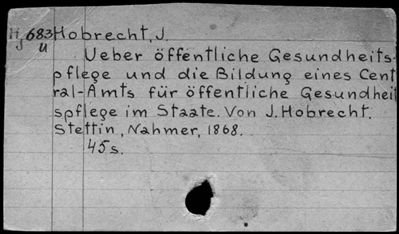 Hj 683 Hobrecht, J.
u
Ueber öffentliche Gesundheits-
pflege und die Bildung eines Cent
ral-Amts für öffentliche Gesundheit
spflege im Staate. Von J. Hobrecht.
Stettin, Nahmer, 1868.
45s.